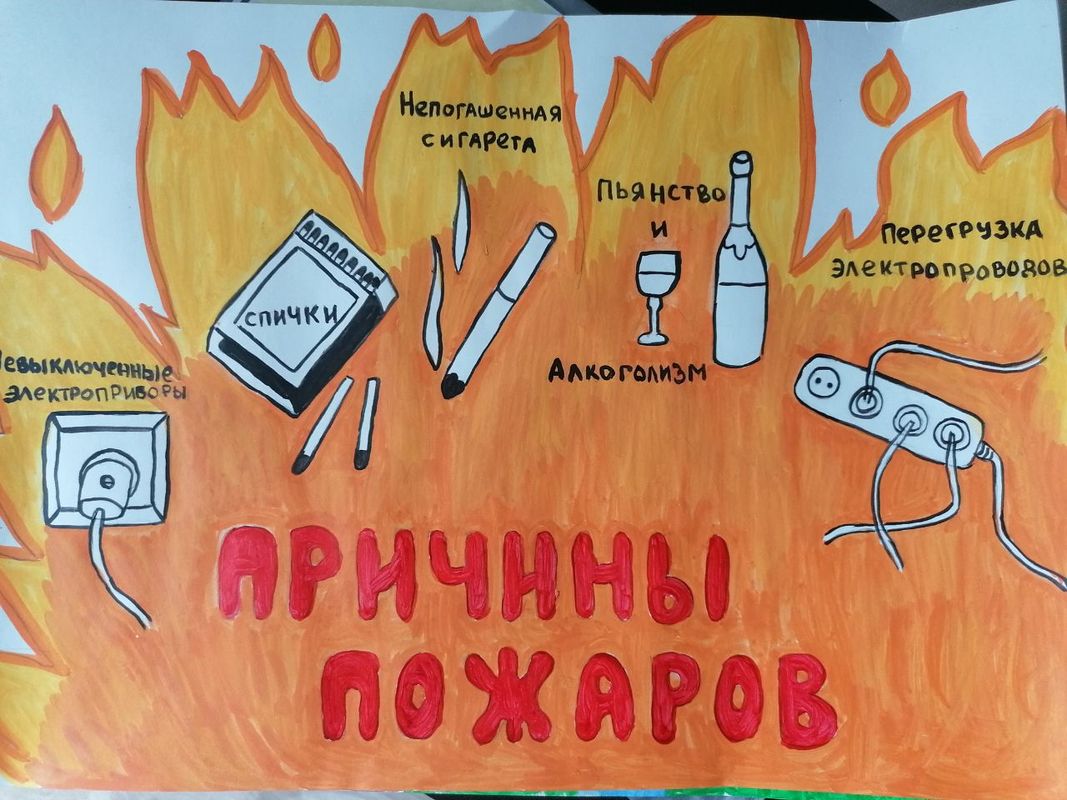 Непогашенная
сигарета
Пьянство
и
Алкоголизм
Перегрузка
электропроводов
спички
Невыключенные
электроприворы
ПРИЧИНЫ
ПОЖАРОВ